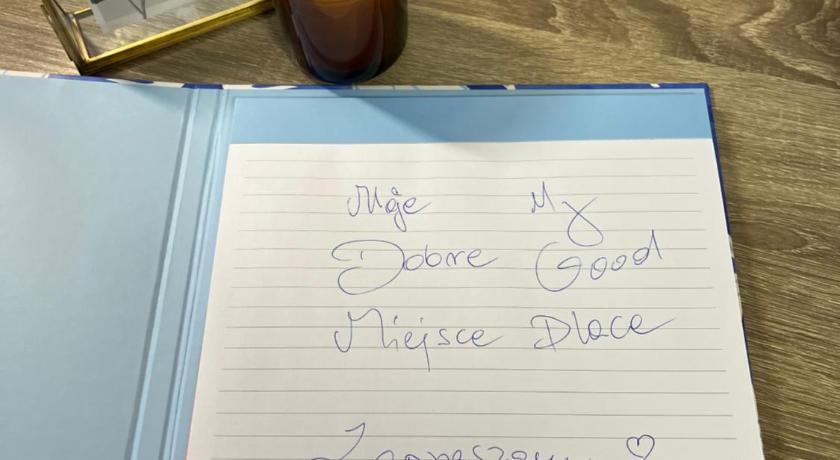 Moje My
Dobre Good
Miejsce Place
Zapraszam ♡